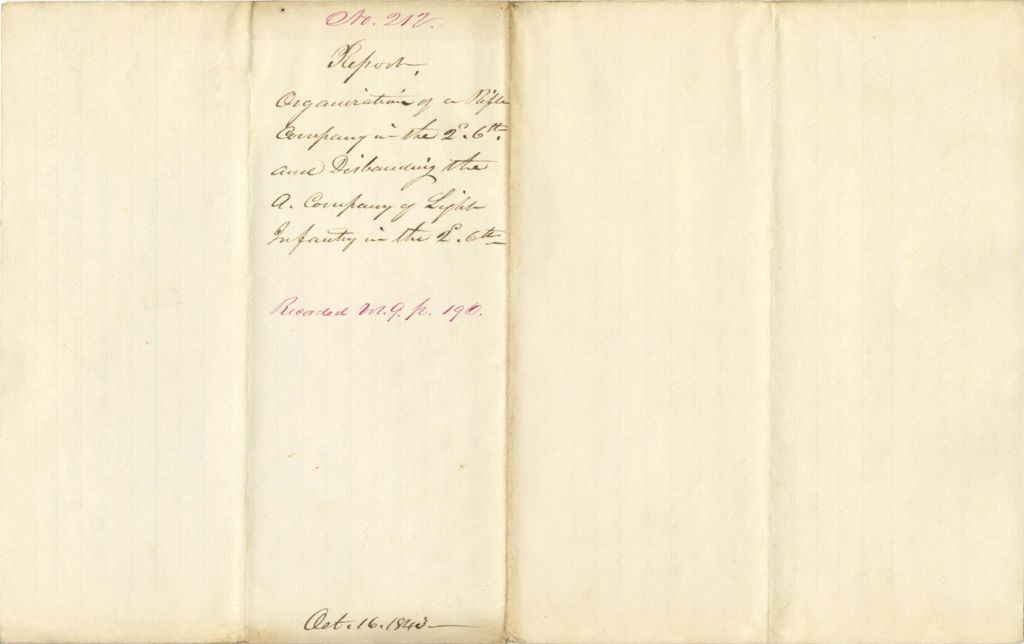 No. 212.
Report.
Organization of a Rifle
Company in the 2d. 6th
and Disbanding the
A. Company of Light
Infantry in the 2d. 6th
Recorded Vol. 9. p. 190.
Oct. 16. 1843